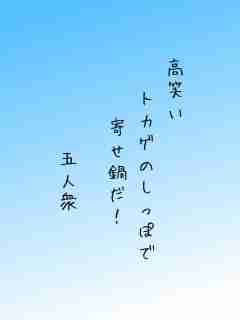 高笑い
トカゲのしっぽで
寄せ鍋だ！
五人衆